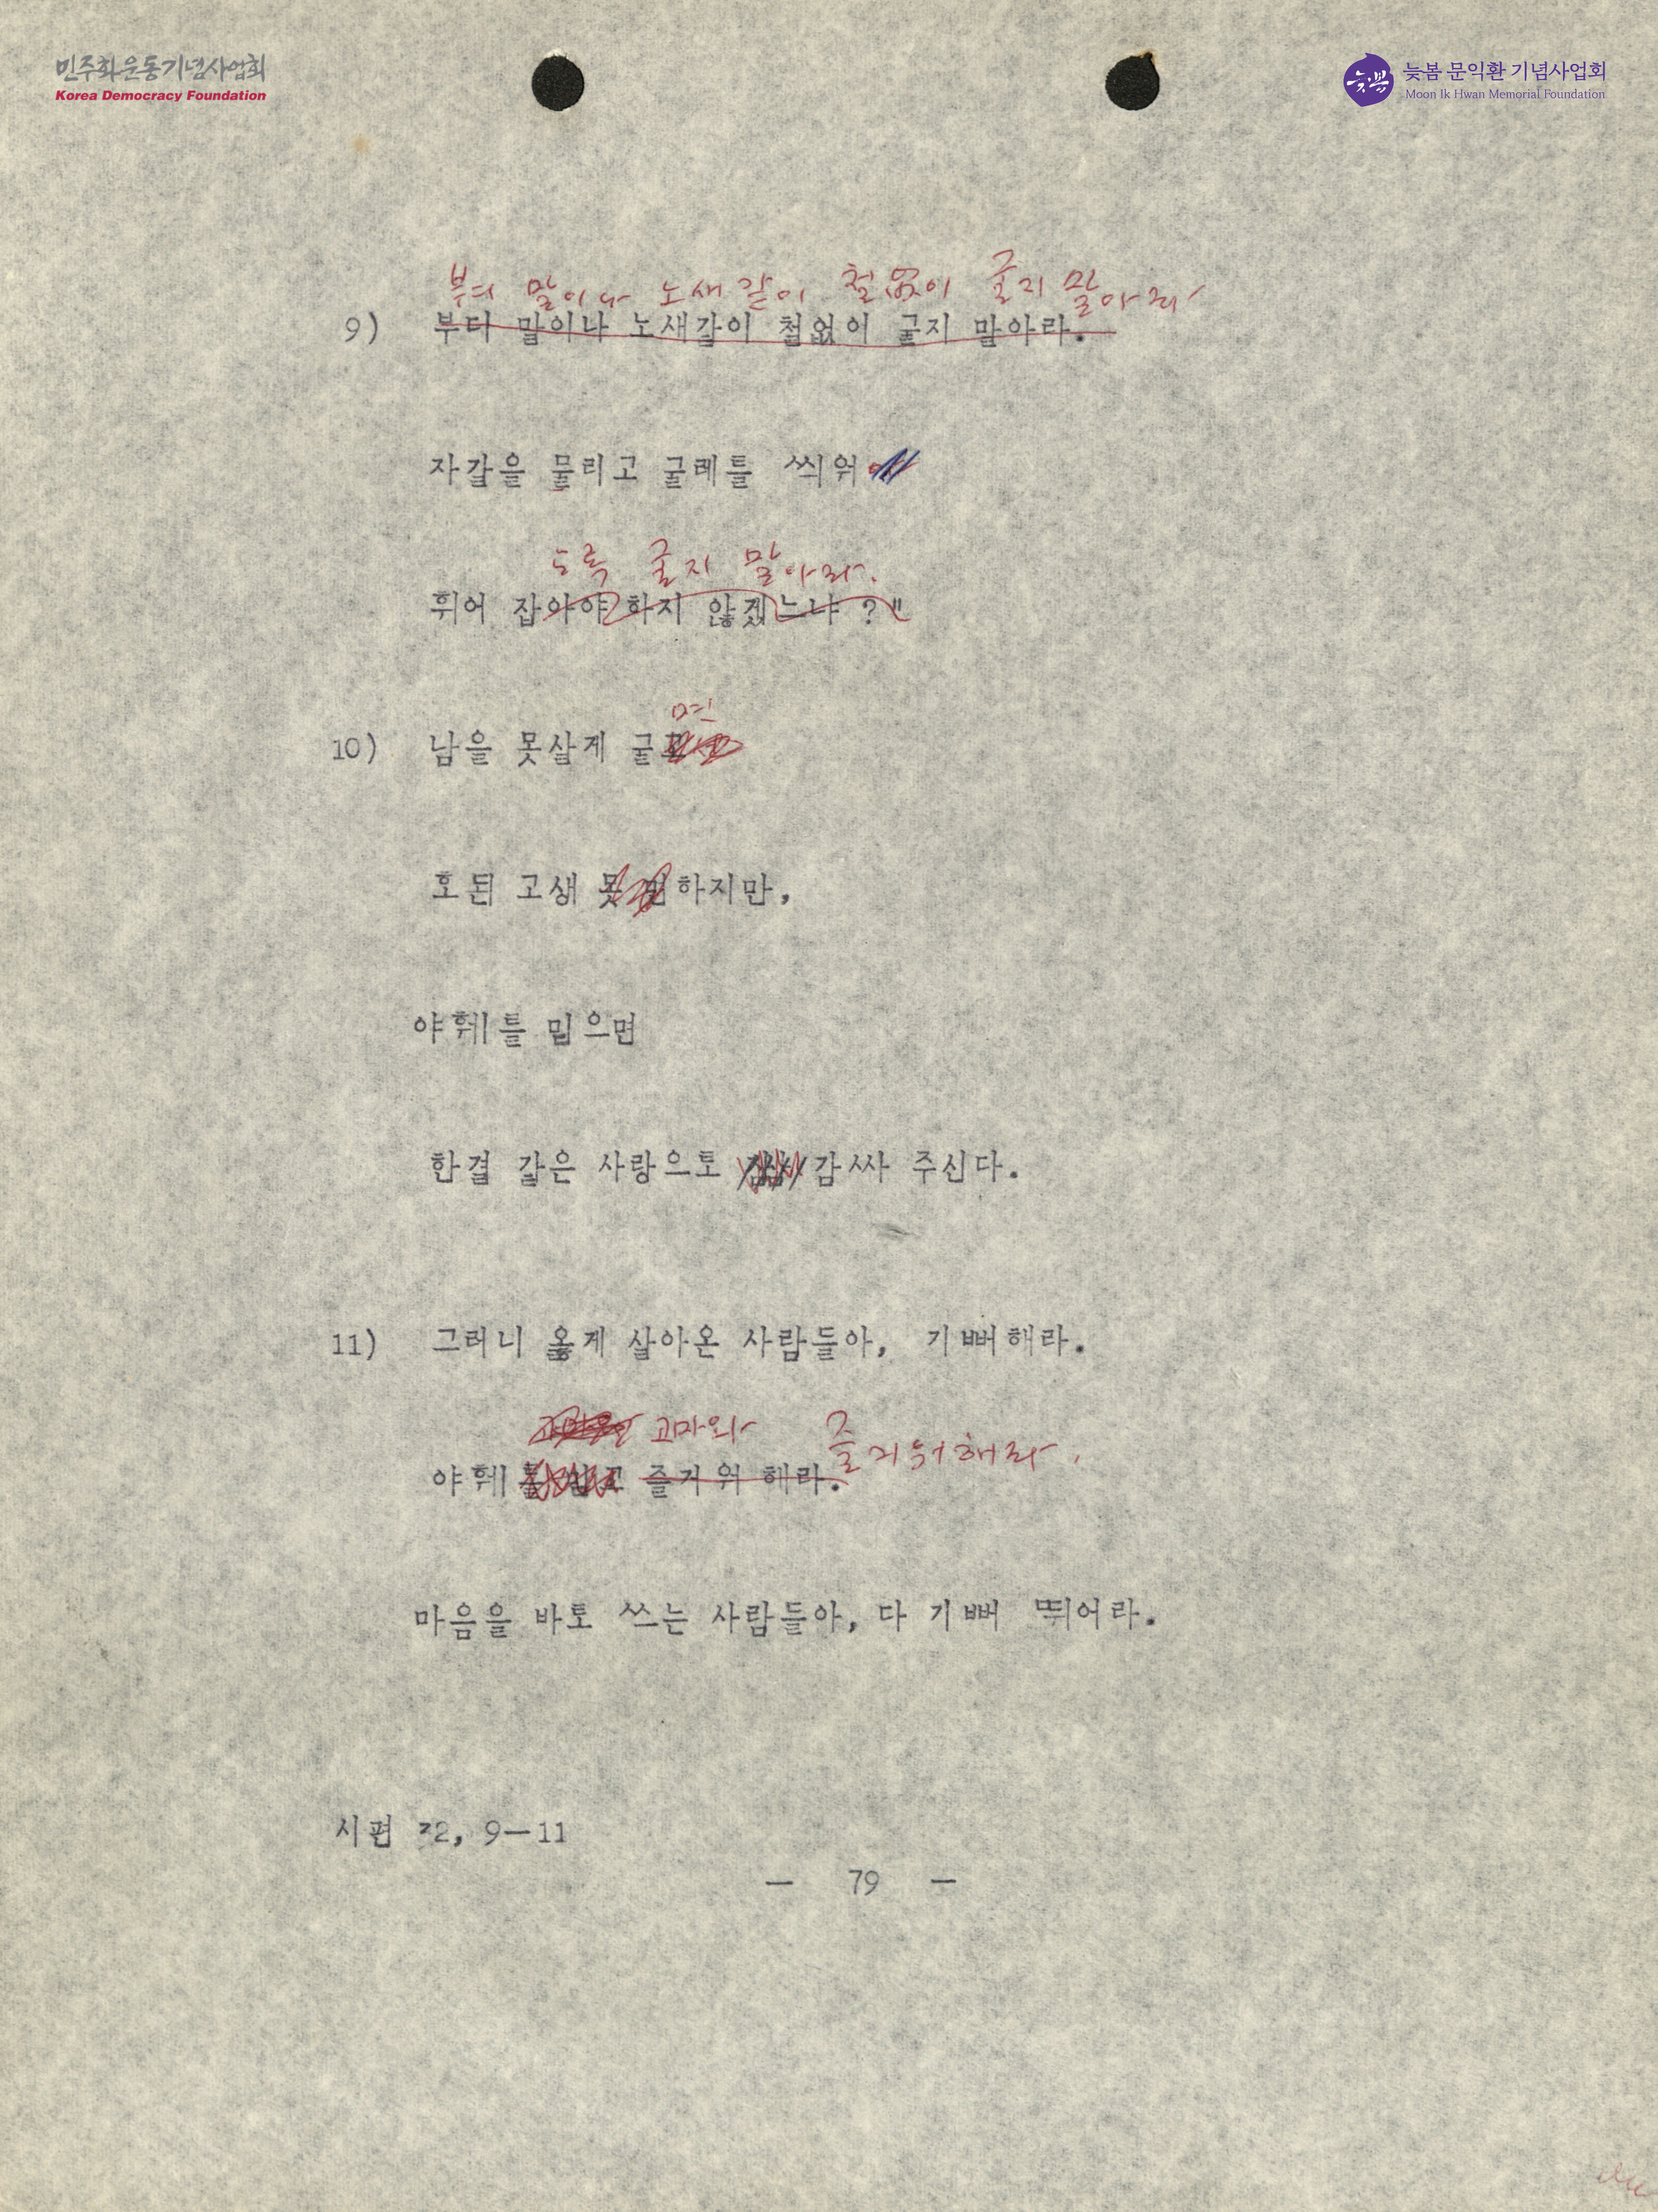 민주화운동기념사업회
Korea Democracy Foundation
늦봄
늦봄 문익환 기념사업회
Moon Ik Hwan Memorial Foundation
부디 말이나 노새같이 철없이 굴지 말아라
9) 부디 말이나 노새같이 철없이 굴지 말아라.
자갈을 물리고 굴레를 씌워
도록 굴지 말아라.
휘어 잡아야 하지 않겠느냐?"
면
10) 남을 못살게 굴
호된 고생 못 면하지만,
야훼를 믿으면
한결 같은 사랑으로 감싸 주신다.
11) 그러니 옳게 살아온 사람들아, 기뻐해라.
고마와 즐거워해라.
야훼를 믿고 즐거워 해라.
마음을 바로 쓰는 사람들아, 다 기뻐 뛰어라.
시편 32, 9—11
— 79 —